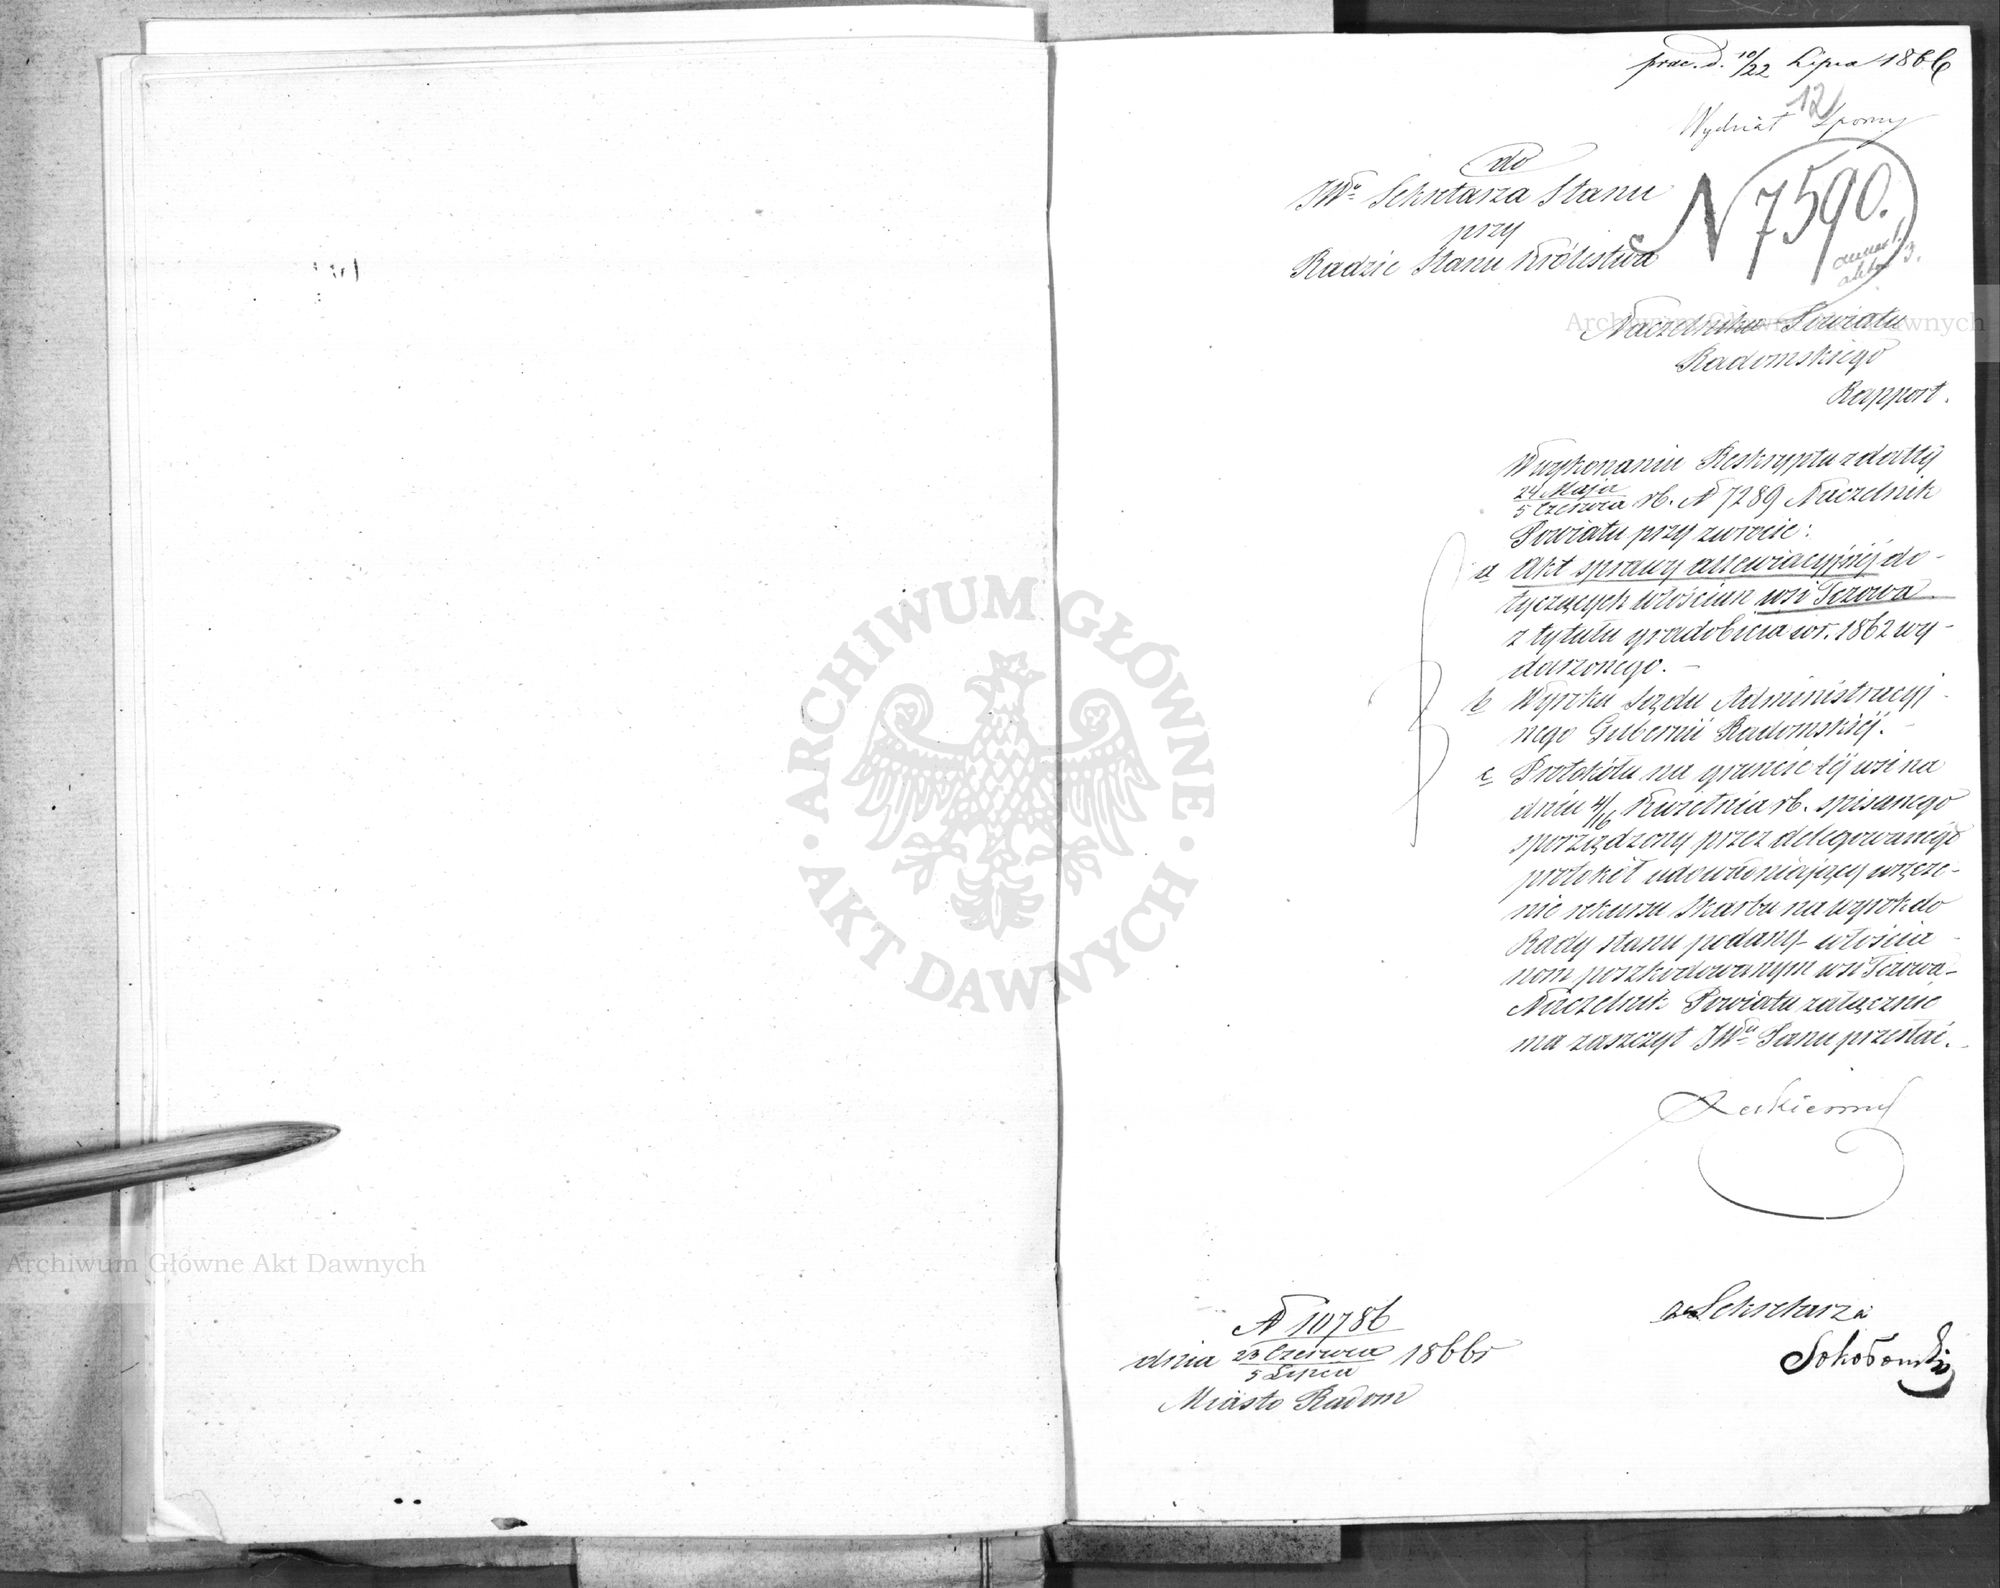 prae. d. 10/22 Lipca 1866
12
Wydział Sporny
do
JWo Sekretarza Stanu
przy
Radzie Stanu Królestwa
N 7590.
annex 1.
3.
Naczelnika Powiatu
Radomskiego
Rapport.
W wykonaniu Reskryptu z daty
24 Maja
5 Czerwca rb. N 7289 Naczelnik
Powiatu przy zwrocie:
a Akt sprawy allewiacyjnéj do-
tyczących włościan wsi Tczowa
z tytułu gradobicia w r. 1862 wy-
darzonego.-
b Wyroku Sądu Administracyj-
nego Gubernii Radomskiéj.-
c Protokółu na gruncie téj wsi na
dniu 4/16 Kwietnia rb. spisanego
sporządzony przez delegowanego
protokół udowodniający wręcze-
nie rekursu Skarbu na wyrok do
Rady Stanu podany- włościa-
nom poszkodowanym wsi Tczowa-
Naczelnik Powiatu załącznie
ma zaszczyt JWu Panu przesłać.-
N 10786
dnia 23 Czerwca 1866r
5 Lipca
Miasto Radom
za Sekretarza
Sokołowski
Archiwum Główne Akt Dawnych
Archiwum Główne Akt Dawnych
ARCHIWUM GŁÓWNE
AKT DAWNYCH